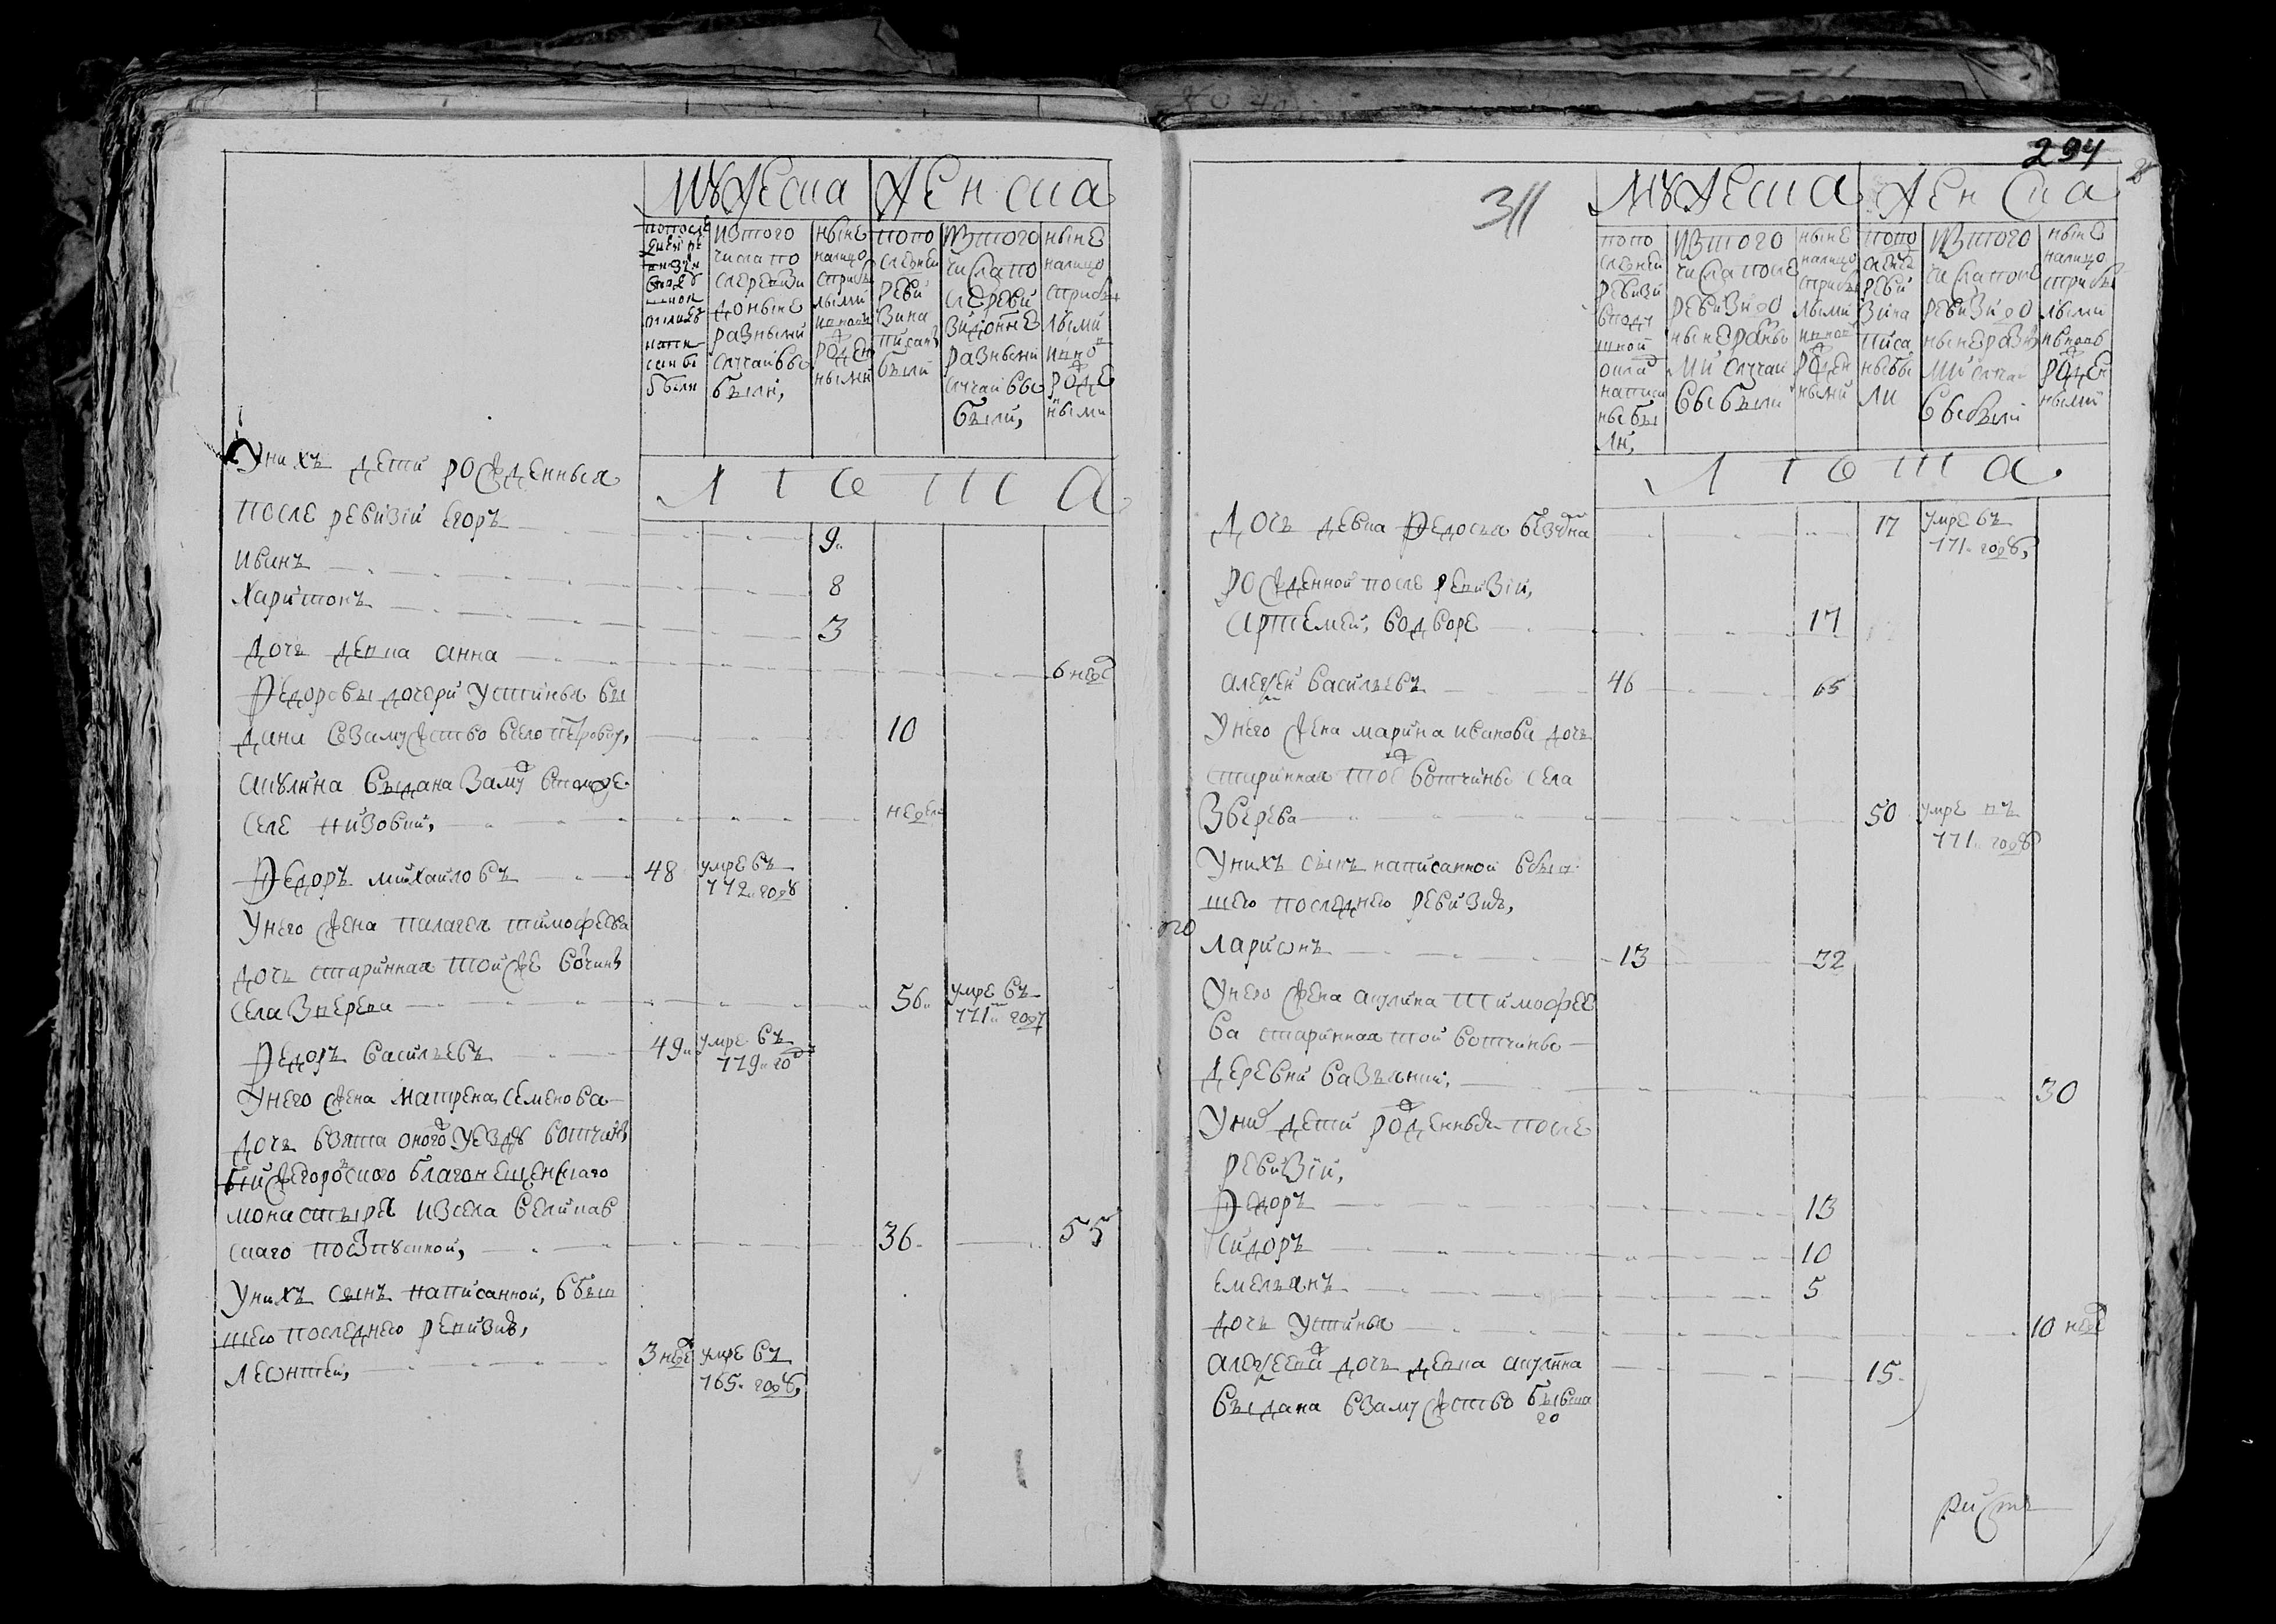 мужеска женска
по после
дней ре
визи
в подуш
ной
оклад
напи
саны
были
изтого
числа по
сле ревизи
доныне
разными
случаи вы
были,
ныне
налицо
с прибы
лыми
и вновь
рожден
ными
попо
следней
реви
зи на
писаны
были
изтого
числа по
сле реви
зи доныне
разными
случаи вы
были,
ныне
налицо
с прибы
лыми
и вно
рожде
ными
лета
у нихъ дети рожденныя
после ревизiи егоръ 9
иванъ 8
харитонъ 3
дочь девка анна 6 нед
федоровы дочери устинья вы
дана взамужство в село 10
акулина выдана замуж в томже
селе низовки, недели
федоръ михайловъ 48 умре въ
772 году
у него жена пилагея тимофеева
дочь старинная тойже вотчины
села зверева 56 умре въ
771 году
федоръ васильевъ 49 умре въ
779 год
у него жена матрена семенова
дочь взята оного уезду вотчины
нижегороцкого благовещенскаго
монастыря из села великов
скаго по отпускной, 36 55
у нихъ сынъ написанной, в быв
шею последнею ревизию,
леонтей, 3 нед умре въ
765 году,
294
311
мужеска женска
попо
следней
ревизи
в поду
шной
оклад
написа
ны бы
ли,
изтого
числа после
ревизи до
ныне разны
ми случаи
выбыли
ныне
налицо
с прибы
лыми
и вновь
рожден
ными
попо
следней
реви
зи на
писа
ны бы
ли
изтого
числа после
ревизи до
ныне разны
ми случаи
выбыли
ныне
налицо
с прибы
лыми
и вновь
рожден
ными
лета
дочь девка федосья 17 умре въ
771 году,
рожденной после ревизiи,
артемей, во дворе 17
алексей васильевъ 46 65
у него жена марина иванова дочь
старинная тоеж вотчины села
зверева 50 умре въ
771 году
у нихъ сынъ написанной в быв
шею последнею ревизию,
ларионъ 13 32
у него жена акулина тимофее
ва старинная той вотчины
деревни 30
у них дети рожденныя после
ревизiи,
федоръ 13
сидоръ 10
емельянъ 5
дочь устинья 10 нед
алексеева дочь девка акулина 15
выдана взамужство бывша
го